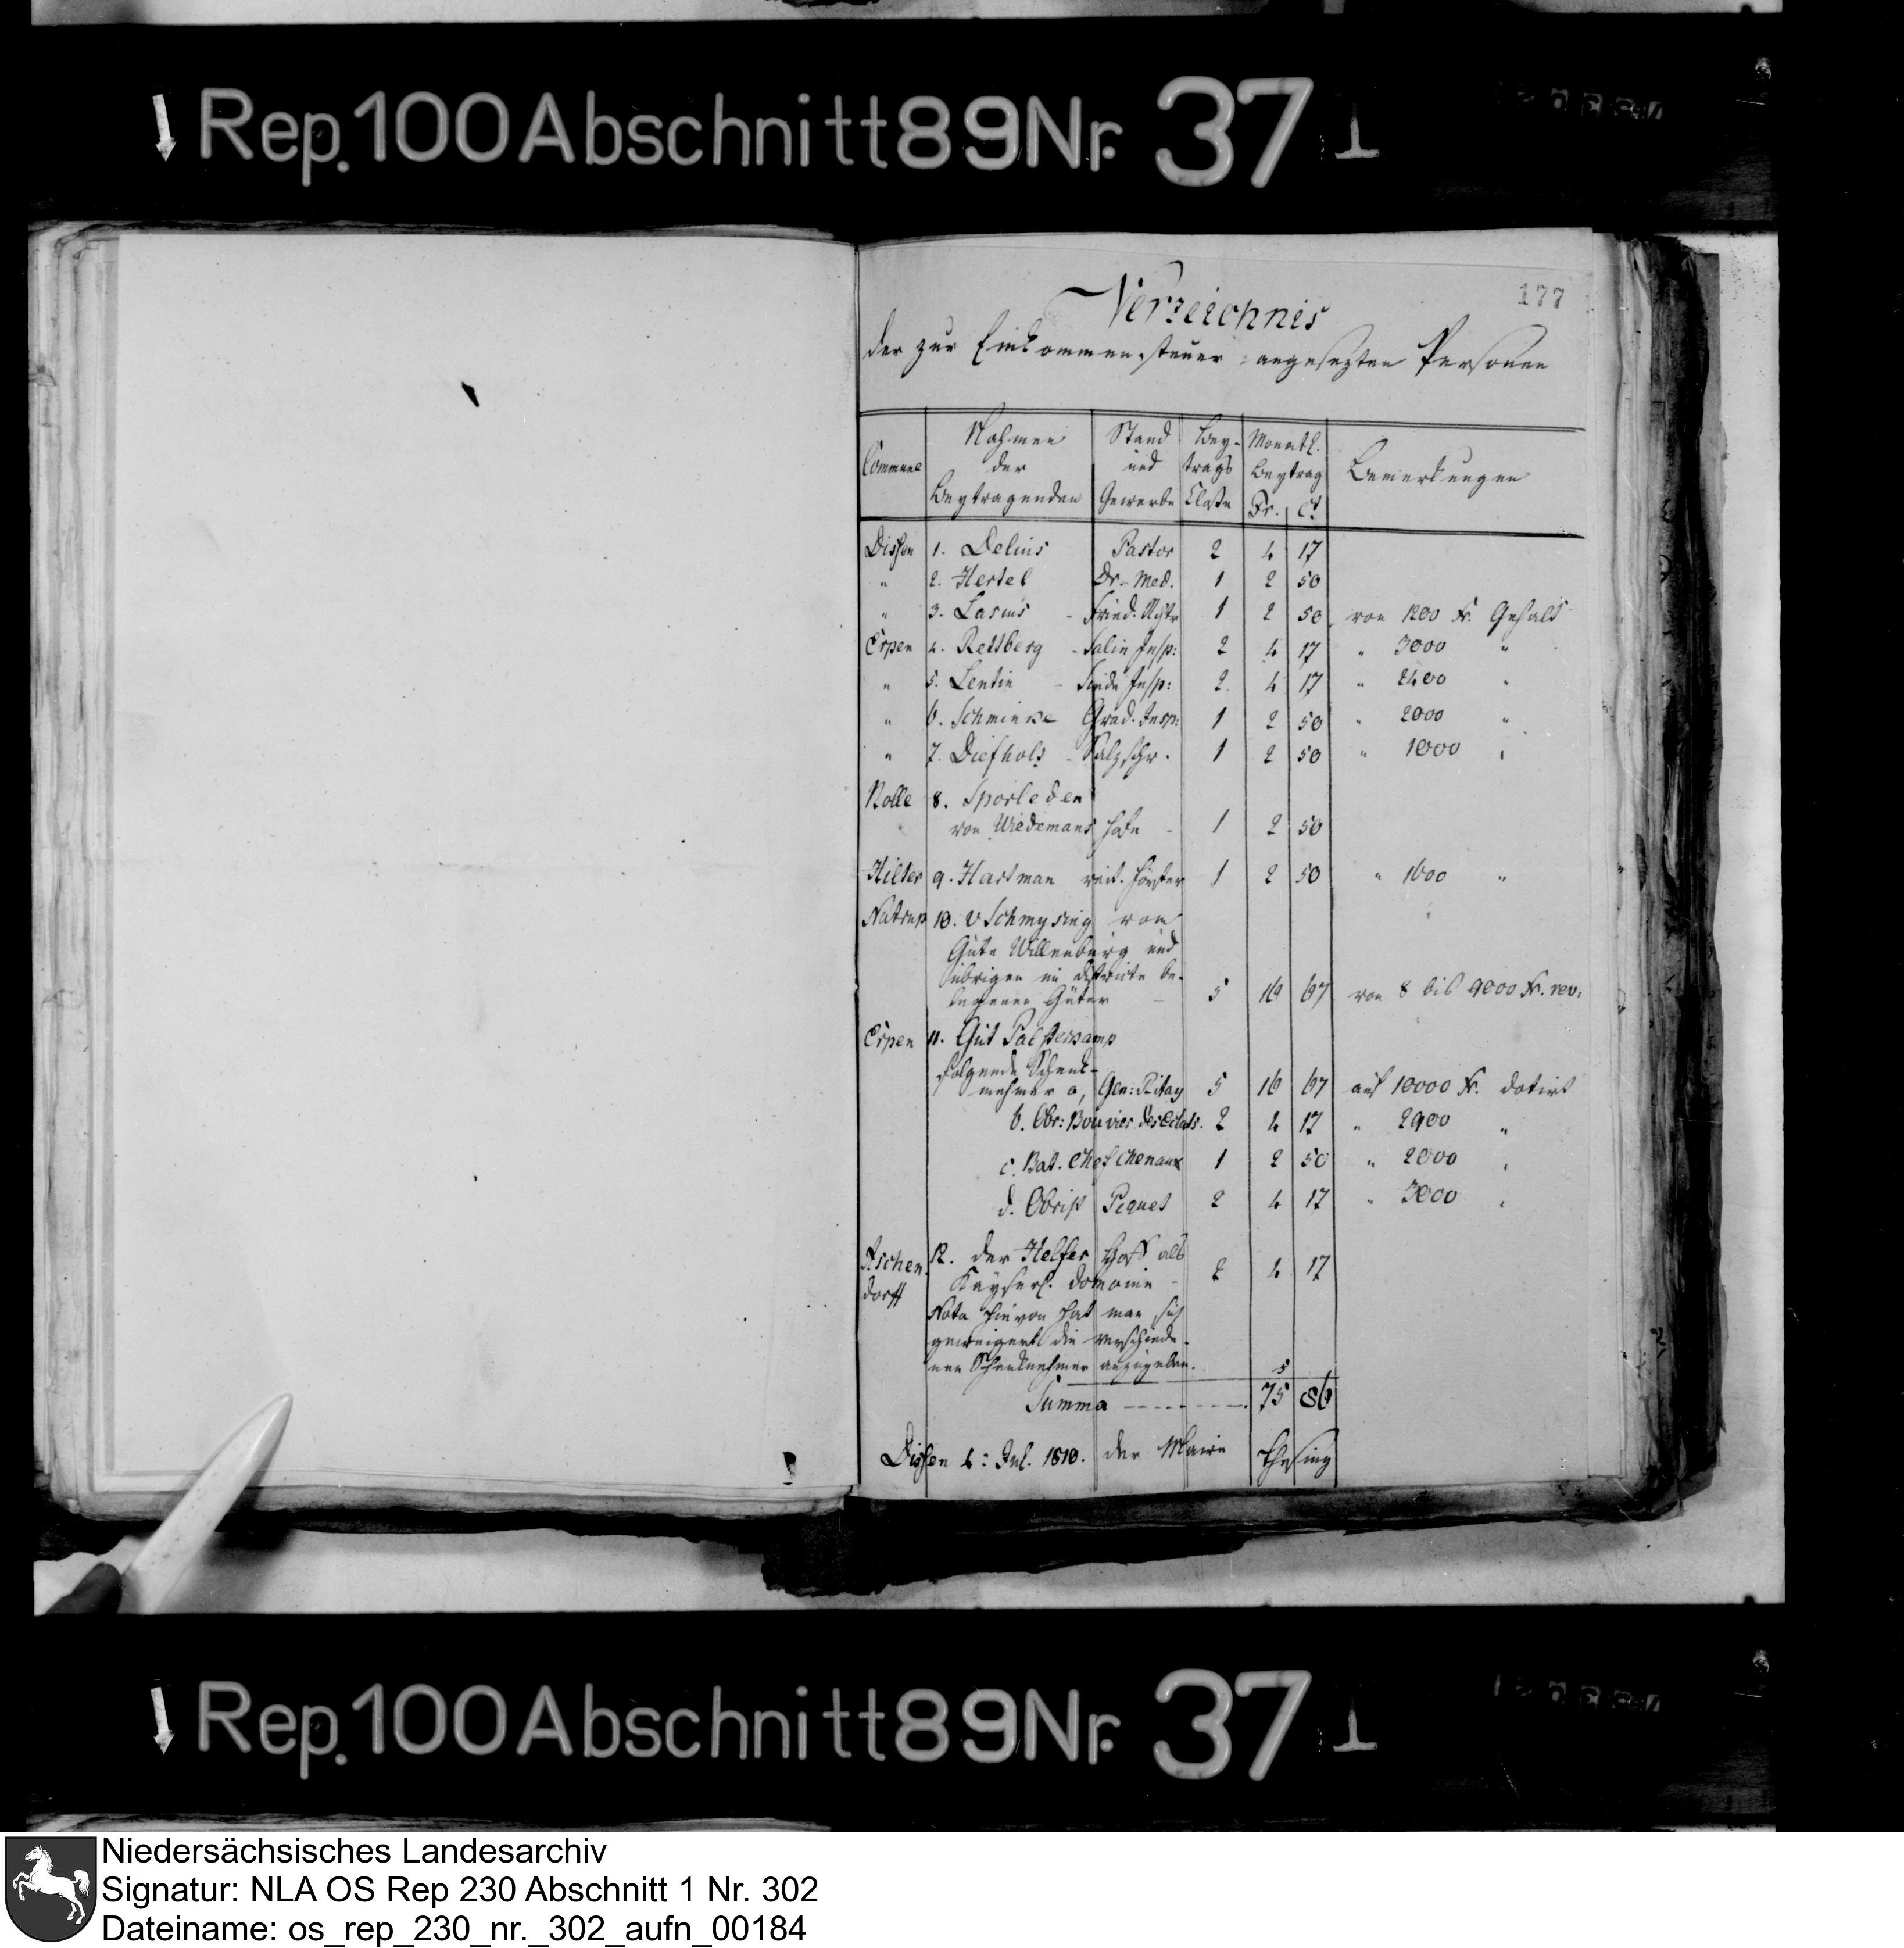 Rep. 100 Abschnitt 89 Nr. 37 I
177
Verzeichnis
der zur Einkommensteuer angesezten Personen
Commune | Nahmen der Beytragenden | Stand und Gewerbe | Bey-trags Classe | Monatl. Beytrag Fr. Ct | Bemerkungen
Dissen 1. Delius Pastor 2 4 17
" 2. Hertel Dr. Med. 1 2 50
" 3. Lasius - Fried. Richtr 1 2 50 von 1200 Fr. Gehalt
Erpen 4. Rettberg - Salin Insp: 2 4 17 " 3000 "
" 5. Lentin - Siede Insp: 2. 4 17 " 2400 "
" 6. Schmincke Grad. Insp: 1 2 50 " 2000 "
" 7. Diefholz - Salzschr. 1 2 50 " 1000 "
Nolle 8. Sporleder
von Wiedemans Hofe - 1 2 50
Hilter 9. Hartman reit. Förster 1 2 50 " 1600 "
Natrup 10. v Schmysing vom
Gute Willenburg und
übrigen im districte be-
legenen Güter - 5 16 67 von 8 bis 9000 Fr. rev:
Erpen 11. Gut Palsterkamp
folgende Schenk-
nehmer a, Gen: Pitay 5 16 67 auf 10000 Fr. dotirt
b. Obr: Bouvier des Eclats. 2 4 17 " 2900 "
c. Bat. Chef Chenaux 1 2 50 " 2000 "
d. Obrist Piquet 2 4 17 " 3000 "
Aschen-
dorff
12. der Helfer Hoff als
Kayserl. domaine - 2 4 17
Nota hievon hat man sich
geweigert die verschiede-
nen Schenknehmer anzugeben.
5
Summa - - - - - - - 75 86
Dissen 4: Jul. 1810. der Maire Thesing
Rep. 100 Abschnitt 89 Nr. 37 I
Niedersächsisches Landesarchiv
Signatur: NLA OS Rep 230 Abschnitt 1 Nr. 302
Dateiname: os_rep_230_nr._302_aufn_00184